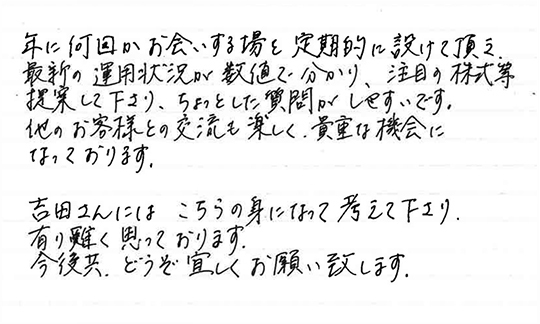 年に何回かお会いする場を定期的に設けて頂き、
最新の運用状況が数値で分かり、注目の株式等
提案して下さり、ちょっとした質問がしやすいです。
他のお客様との交流も楽しく、貴重な機会に
なっております。
吉田さんには こちらの身になって考えて下さり、
有り難く思っております。
今後共、どうぞ宜しくお願い致します。